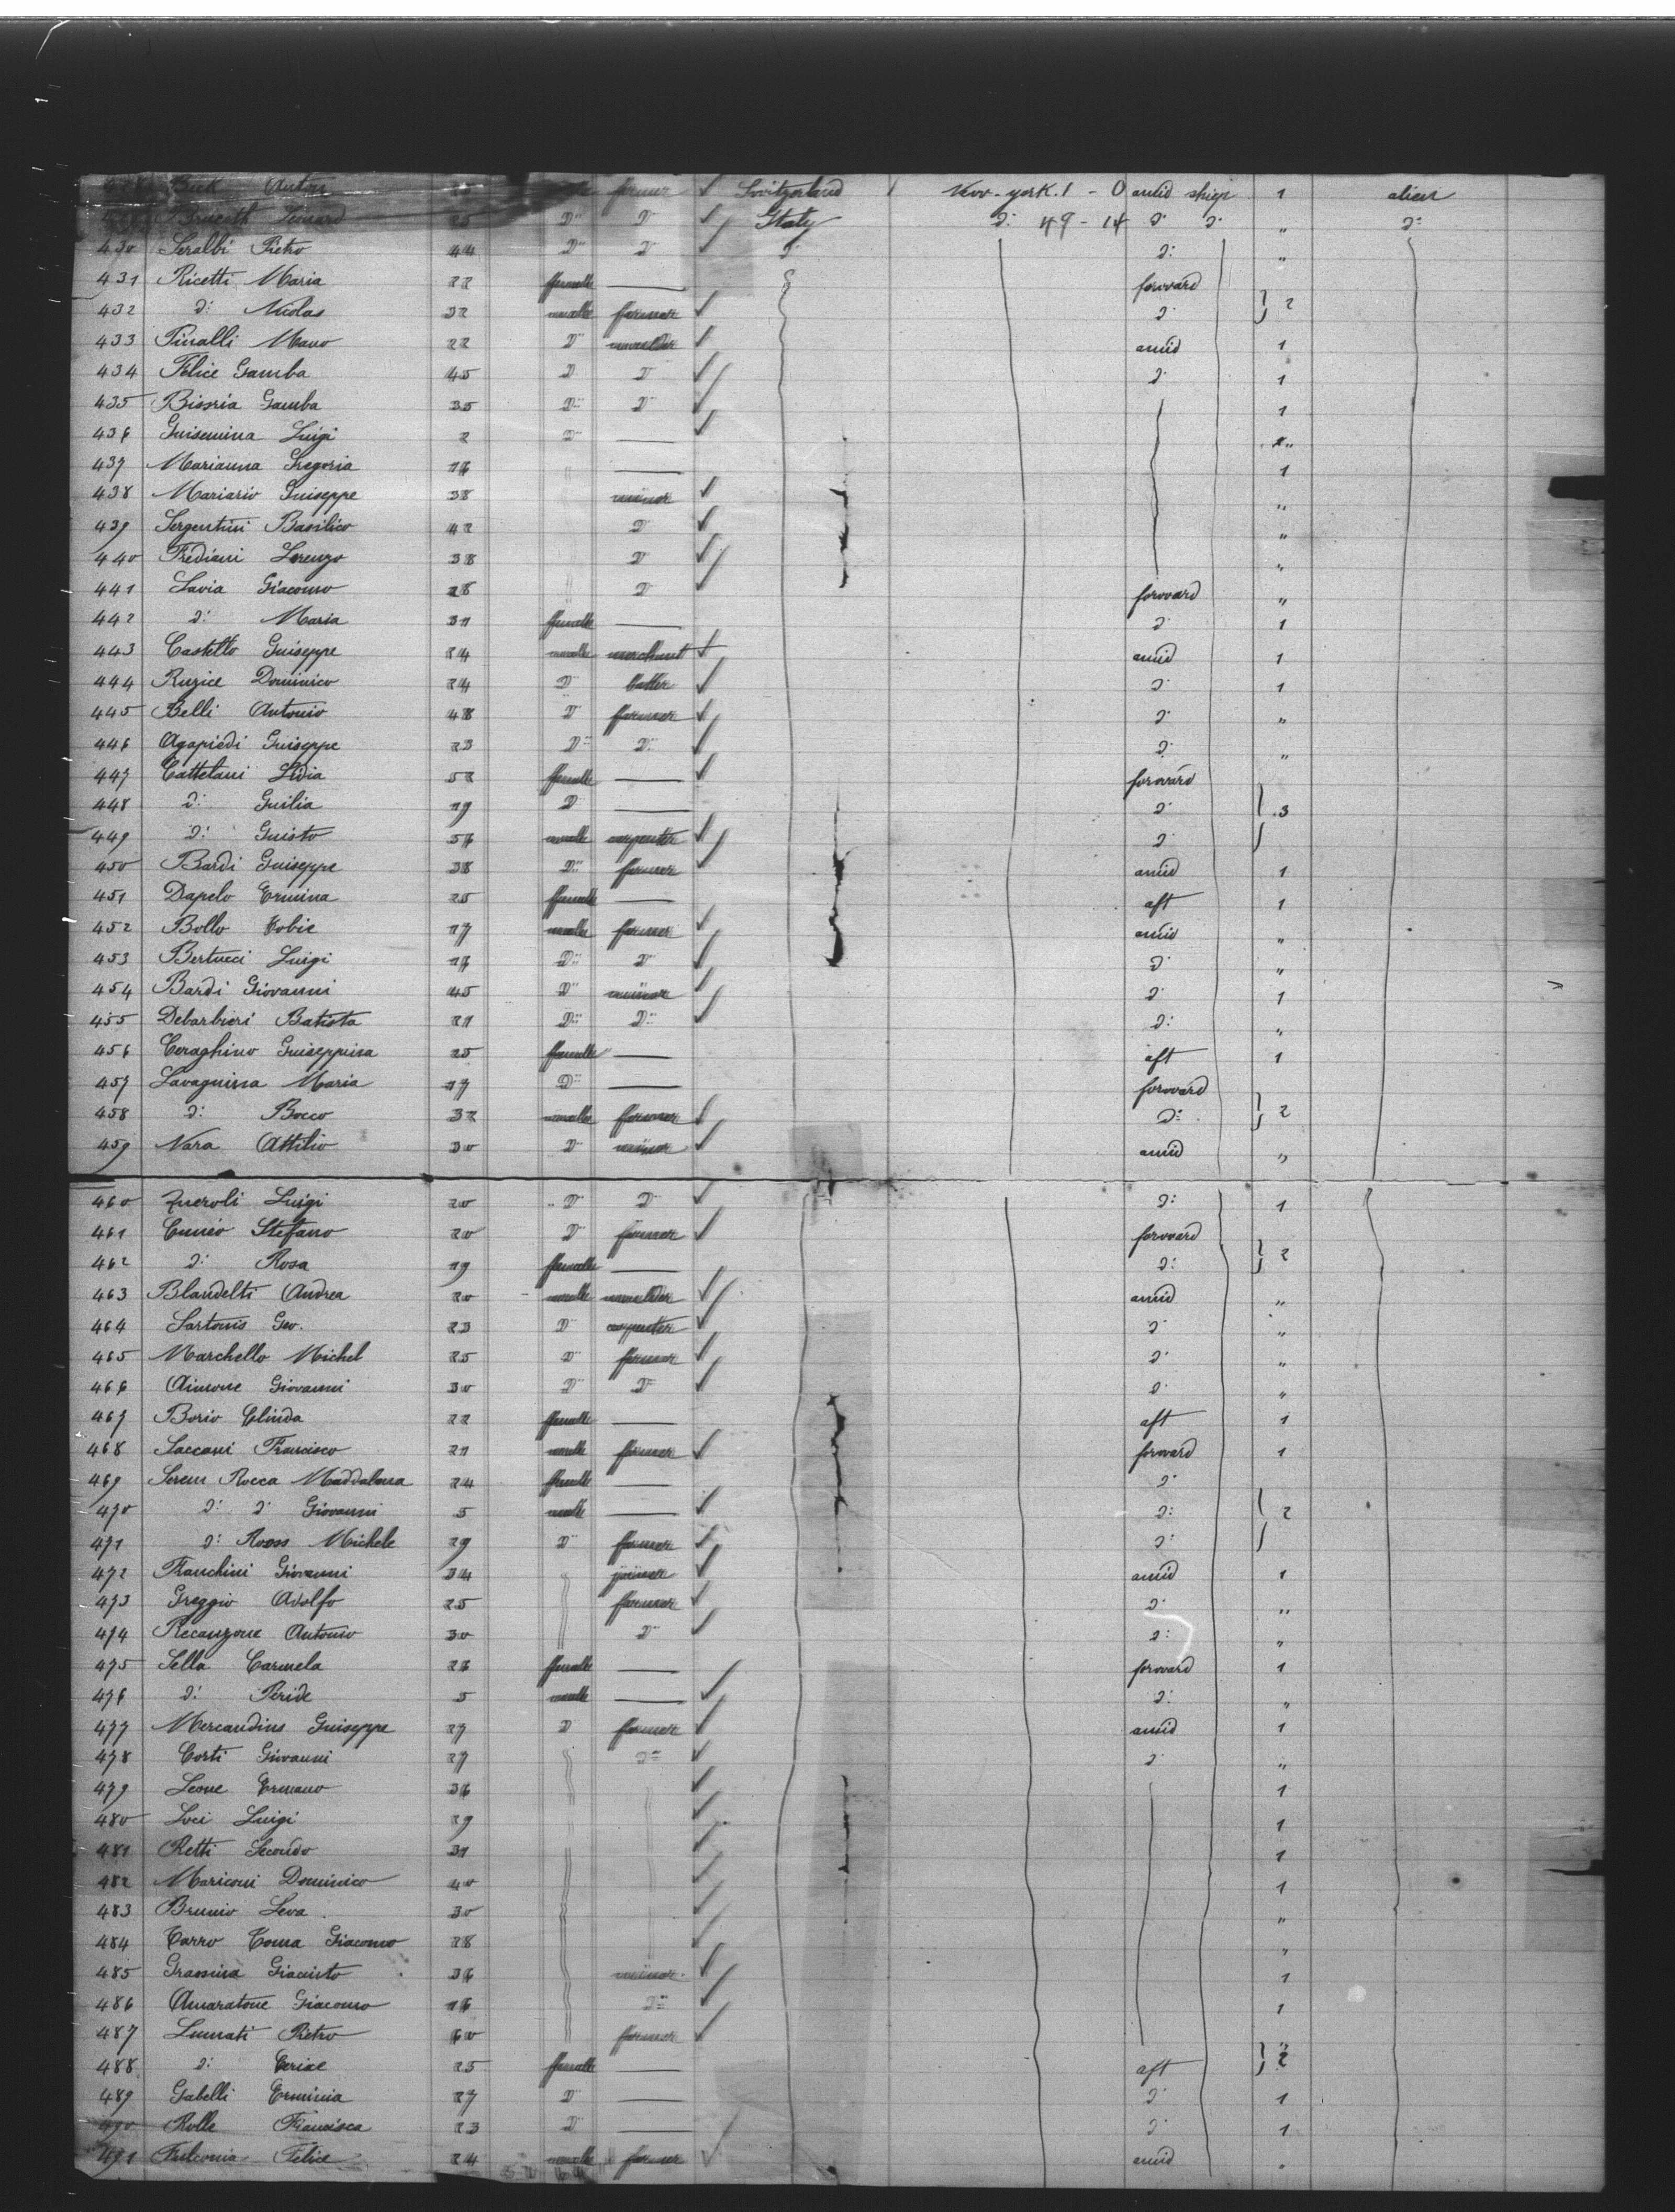 Anton farmer ✓ Switzerland New-york. 1 - 0 amid ships 1 alien
Leonard 25 D° D° ✓ Italy d: 49 - 14 d° d° " d:
430 Seralbi Pietro 44 D° D° ✓ d: d: "
431 Ricetti Maria 22 female — forward
432 d: Nicolas 32 male farmer ✓ d° } 2
433 Pinalli Mano 22 D° moulder ✓ amid 1
434 Felice Gamba 45 D D° ✓ d° 1
435 Gamba 35 D° D° ✓ 1
436 Luigi 2 D° — ✓ "
437 Marianna Gregoria 16 — 1
438 Mariario Guiseppe 38 minor ✓ "
439 Sergentini Basilico 42 D° ✓ "
440 Frediani Lorenzo 38 D° ✓ "
441 Lavia Giacomo 28 D° ✓ forward "
442 d: Maria 31 female — d° 1
443 Castetto Guiseppe 24 male merchant ✓ amid 1
444 Ruzice Dominico 24 D° ✓ d° 1
445 Belli Antonio 48 D° farmer ✓ d° "
446 Agapiedi Guiseppe 23 D° D° ✓ d: "
447 Cattelani Lidia 52 female — ✓ forward
448 d: Guilia 19 D — d° } 3
449 d: Guisto 56 male carpenter ✓ d°
450 Bardi Guiseppe 38 D° farmer ✓ amid 1
451 Dapelo Ermina 25 female — aft 1
452 Bollo 17 male farmer ✓ amid "
453 Bertucci Luigi 16 D° D° ✓ d° "
454 Bardi Giovanni 45 D° minor ✓ d° 1
455 Debarbieri Batista 21 D° D° ✓ d: "
456 Ceraghino Guiseppina 25 female — aft 1
457 Lavagnina Maria 17 D° — forward
458 d: Bocco 32 male farmer ✓ d: } 2
459 Nara Attilio 30 D° minor ✓ amid "
460 Luigi 20 D° D° ✓ d: 1
461 Cunéo Stefano 20 D° farmer ✓ forward
462 d: Rosa 19 female — d: } 2
463 Blandelti Andrea 20 male moulder ✓ amid "
464 Sartonis Geo. 23 D° carpenter ✓ d° "
465 Marchello Michel 25 D° farmer ✓ d° "
466 Aimone Giovanni 30 D° D° ✓ d° "
467 Borio Clinda 22 female — aft 1
468 Saccani Francisco 21 male farmer ✓ forward 1
469 Rocca Maddalena 24 female — d°
470 d: d° Giovanni 5 male — ✓ d: } 2
471 d: Michele 29 D° farmer ✓ d:
472 Franchini Giovanni 34 joiner ✓ amid 1
473 Greggio Adolfo 25 farmer ✓ d: "
474 Recanzone Antonio 30 D° ✓ d: "
475 Sella Carmela 26 female — forward 1
476 d: Peride 5 male — ✓ d: "
477 Mercandins Guiseppe 27 D farmer ✓ amid 1
478 Corti Giovanni 27 D° ✓ d° "
479 Leone Ermano 36 ✓ 1
480 Loci Luigi 29 ✓ 1
481 Retti Secondo 31 ✓ 1
482 Mariconi Dominico 40 ✓ 1
483 Brunio Leva 30 ✓ "
484 Carro Giacomo 28 ✓ "
485 Giacinto 36 minor ✓ 1
486 Amaratone Giacomo 16 D° ✓ 1
487 Lunrati Pietro 60 farmer ✓ "
488 d: 25 female — aft } 2
489 Gabelli Erminia 27 D° — d° 1
490 Rolle Francisca 23 D° — d° 1
491 Felice 24 male farmer ✓ amid